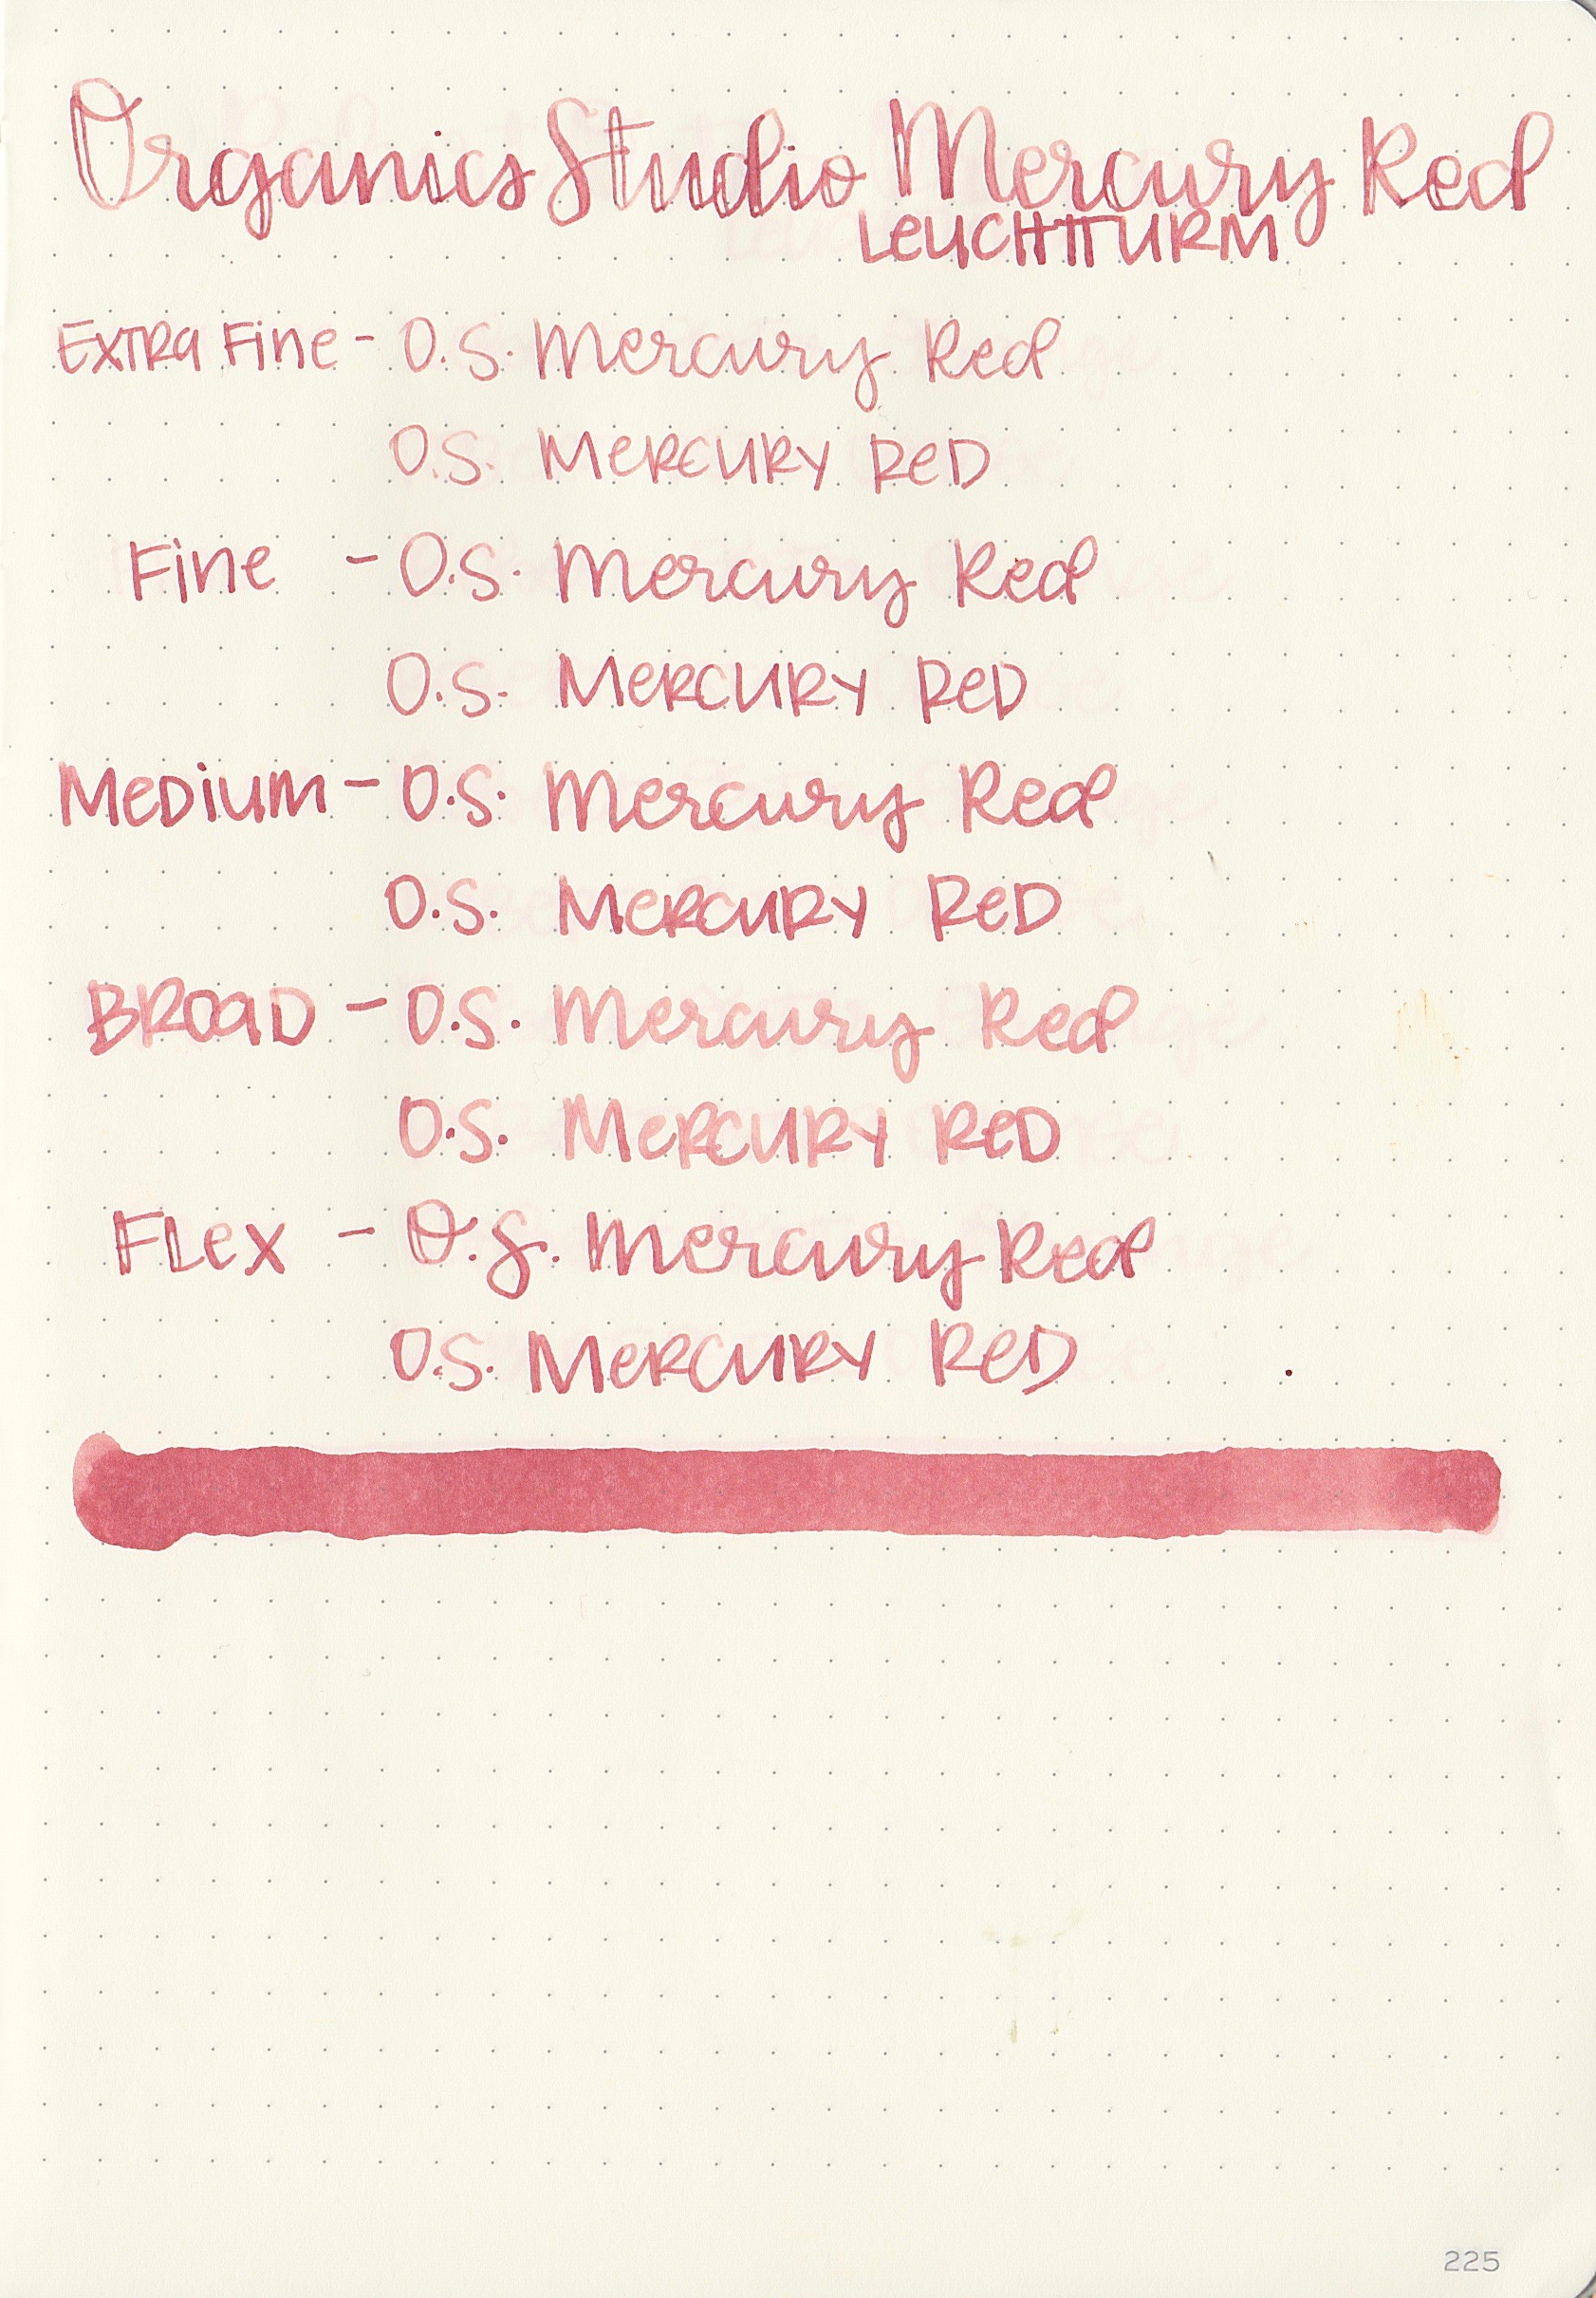 Organics Studio Mercury Red
LEUCHTTURM
EXTRA FINE - O.S. Mercury Red
O.S. MERCURY RED
FINE - O.S. Mercury Red
O.S. MERCURY RED
MEDIUM - O.S. Mercury Red
O.S. MERCURY RED
BROAD - O.S. Mercury Red
O.S. MERCURY RED
FLEX - O.S. Mercury Red
O.S. MERCURY RED
225